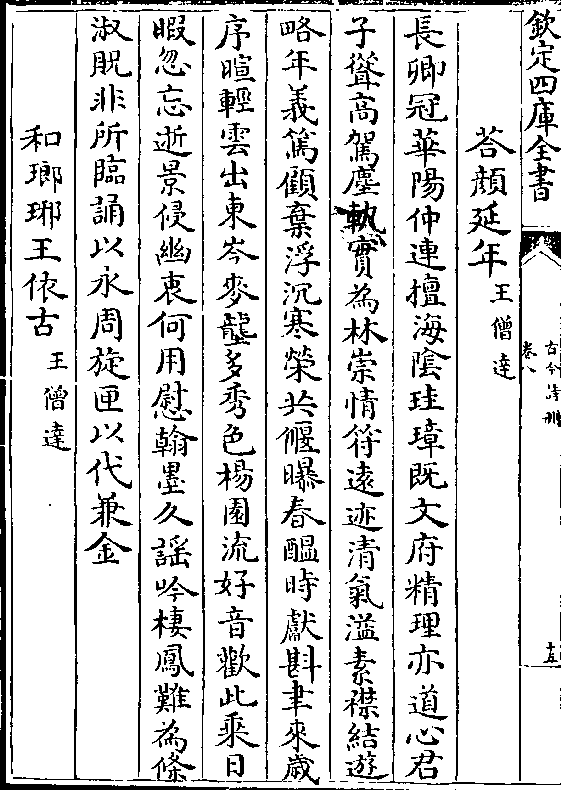 欽定四庫全書
古今詩刪
卷八
十五
荅顔延年 王僧達
長卿冠華陽仲連擅海隂珪璋既文府精理亦道心君
子聳高駕塵軌實為林崇情符遠迹清氣溢素襟結遊
略年義篤顧棄浮沉寒榮共偃曝春醖時獻斟聿來歲
序暄輕雲出東岑麥壟多秀色楊園流好音歡此乘日
暇忽忘逝景侵幽衷何用慰翰墨久謡吟棲鳳難為條
淑貺非所臨誦以永周旋匣以代兼金
和瑯琊王依古 王僧達